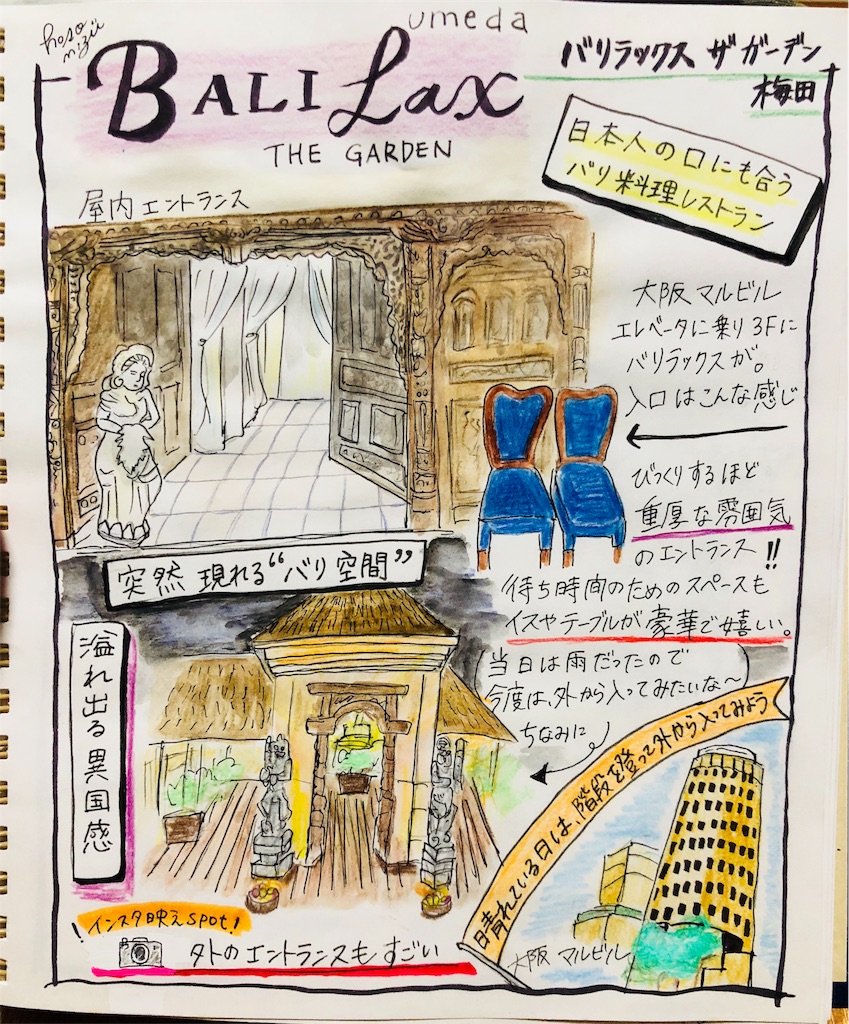 hoso mizu
umeda
BALI Lax
THE GARDEN
バリラックス ザ ガーデン
梅田
日本人の口にも合う
バリ料理レストラン
屋内エントランス
大阪マルビル
エレベータに乗り3Fに
バリラックスが。
入口はこんな感じ
びっくりするほど
重厚な雰囲気
のエントランス!!
突然現れる“バリ空間”
待ち時間のためのスペースも
イスやテーブルが豪華で嬉しい。
溢れ出る異国感
当日は雨だったので
今度は、外から入ってみたいな〜
ちなみに
晴れている日は、階段を登って外から入ってみよう
大阪マルビル
!インスタ映えspot!
外のエントランスもすごい